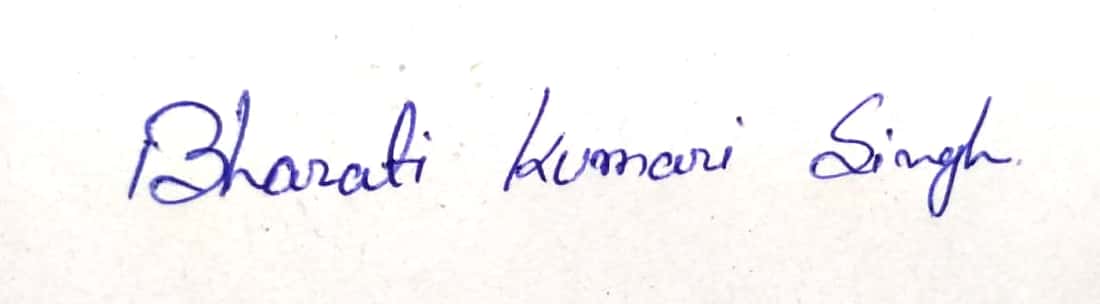 Bharati Kumari Singh